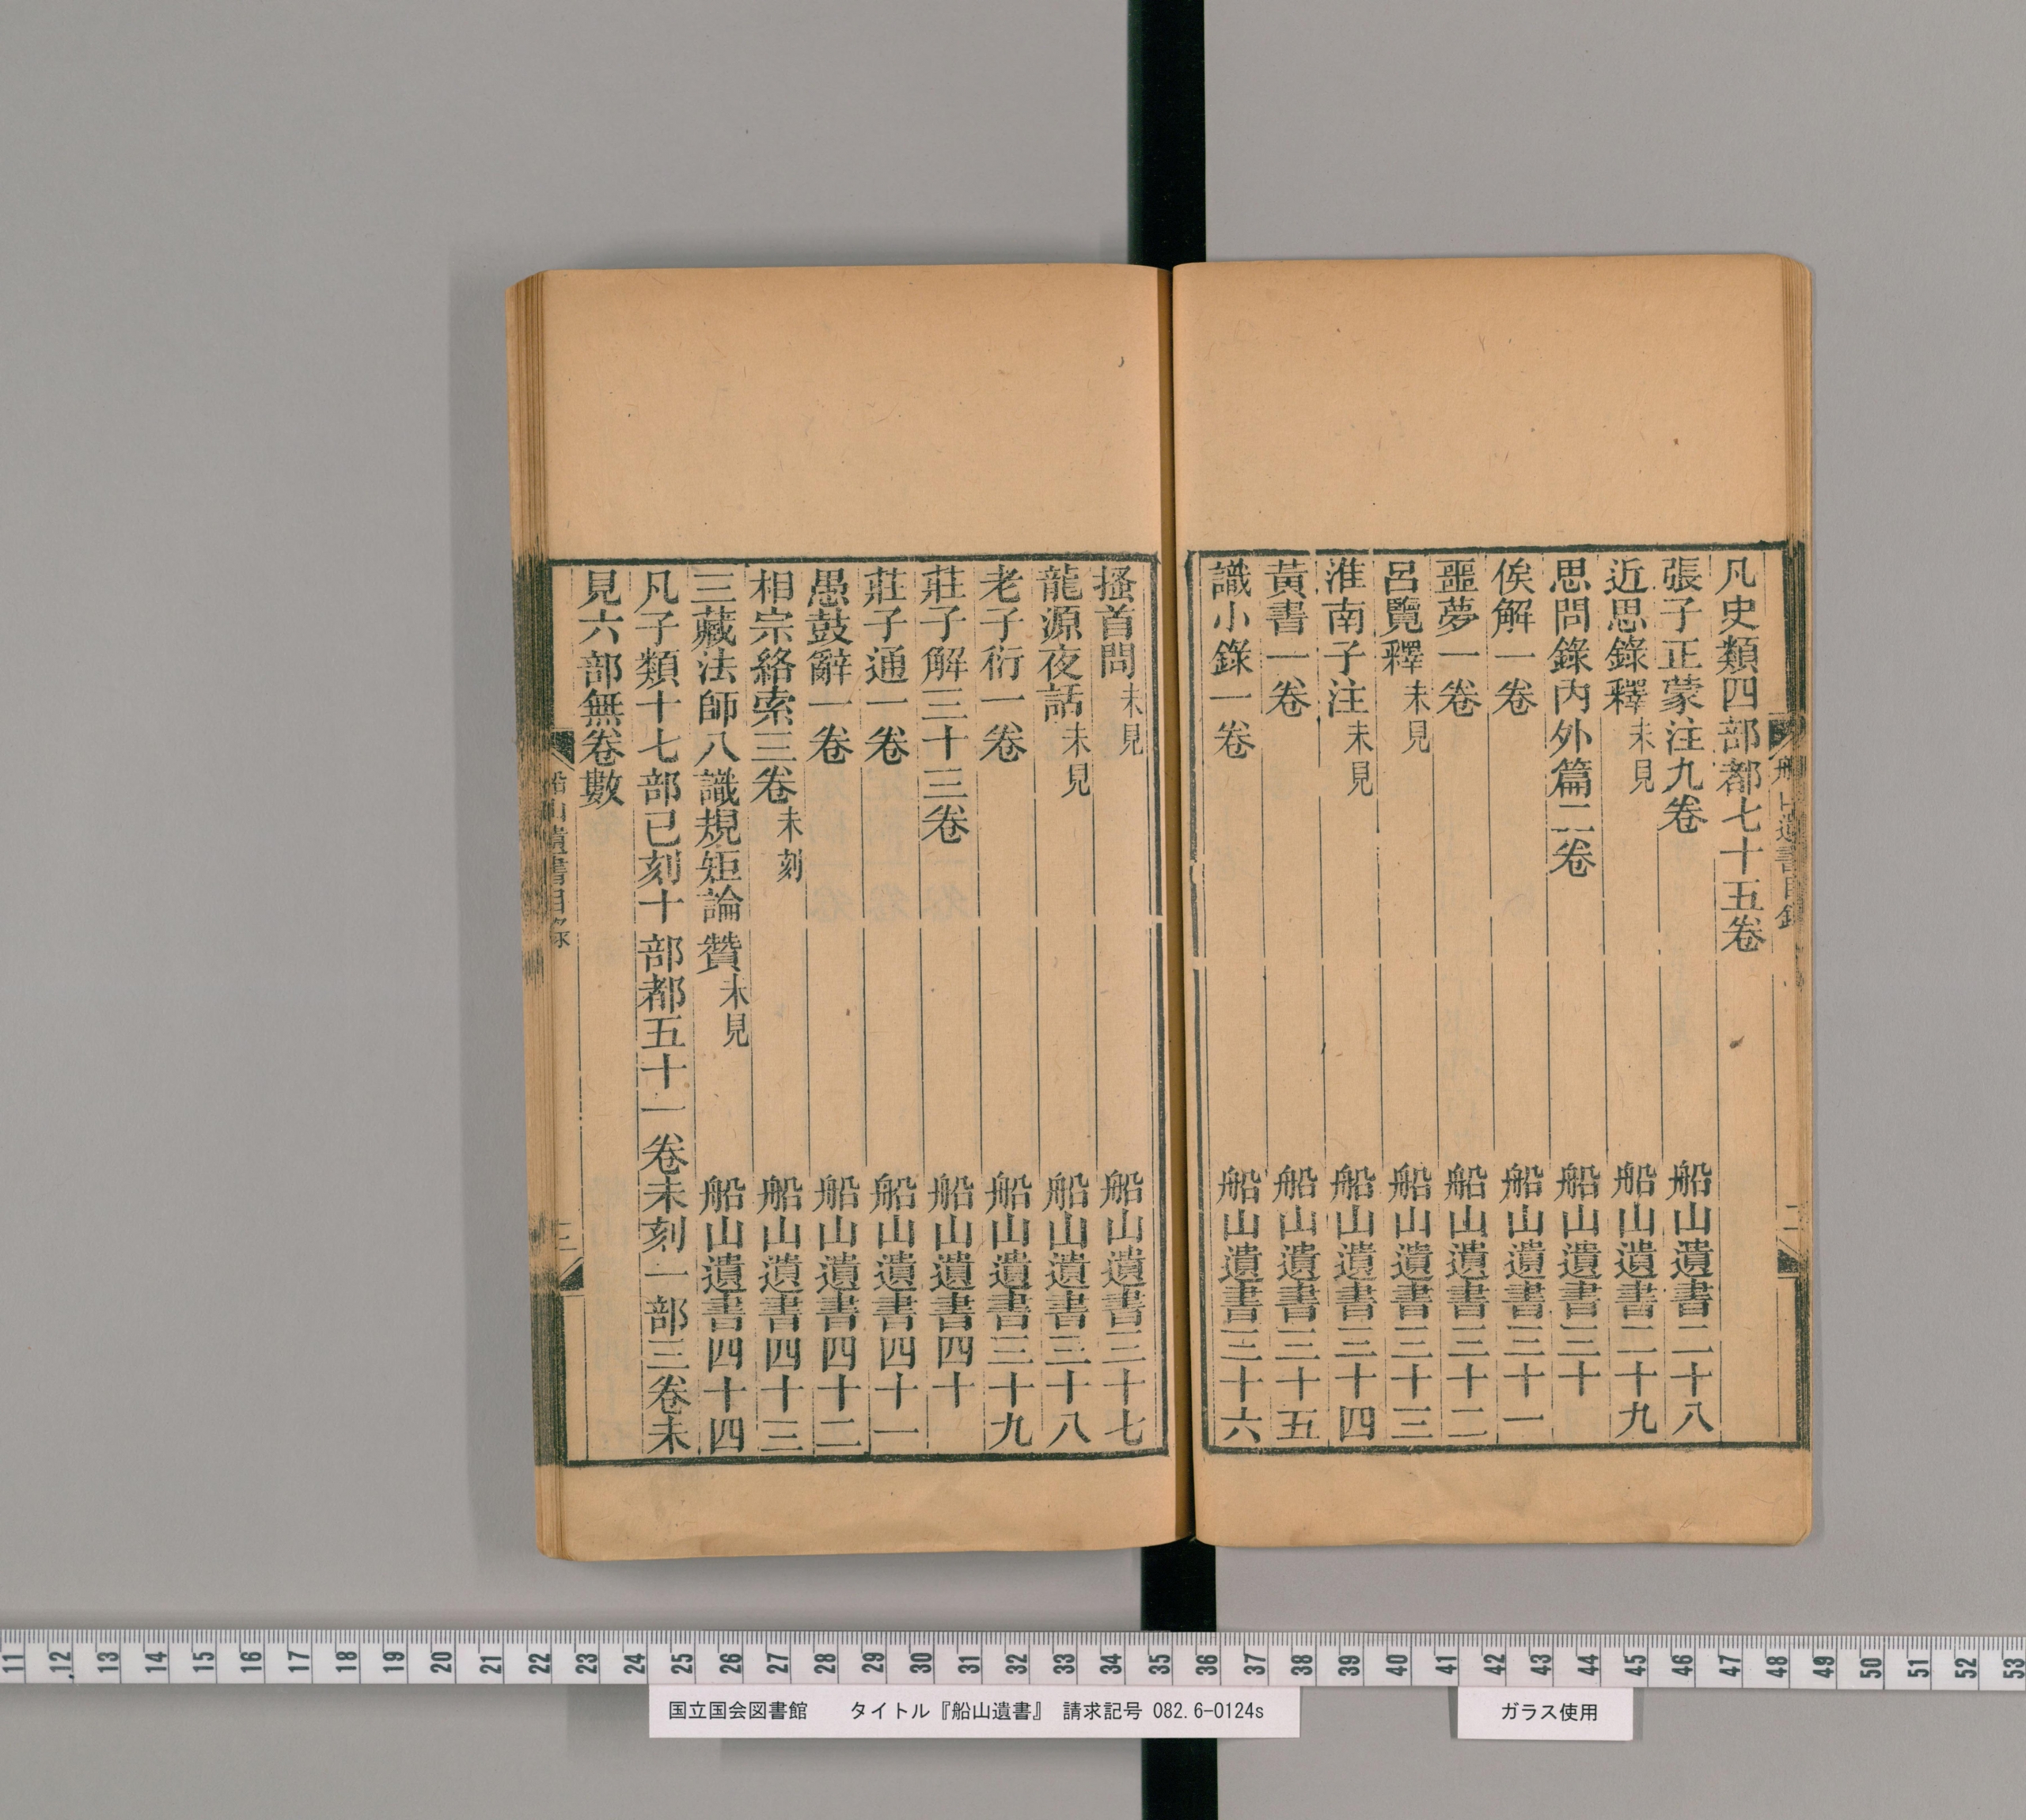 凡史類四部都七十五卷
張子正蒙注九卷 船山遺書二十八
近思錄釋 未見 船山遺書二十九
思問錄內外篇二卷 船山遺書三十
俟解一卷 船山遺書三十一
噩夢一卷 船山遺書三十二
呂覽釋 未見 船山遺書三十三
淮南子注 未見 船山遺書三十四
黃書一卷 船山遺書三十五
識小錄一卷 船山遺書三十六
搔首問 未見 船山遺書三十七
龍源夜話 未見 船山遺書三十八
老子衍一卷 船山遺書三十九
莊子解三十三卷 船山遺書四十
莊子通一卷 船山遺書四十一
愚鼓辭一卷 船山遺書四十二
相宗絡索三卷 未刻 船山遺書四十三
三藏法師八識規矩論贊 未見 船山遺書四十四
凡子類十七部已刻十部都五十一卷未刻一部三卷未
見六部無卷數
船山遺書目錄
11 12 13 14 15 16 17 18 19 20 21 22 23 24 25 26 27 28 29 30 31 32 33 34 35 36 37 38 39 40 41 42 43 44 45 46 47 48 49 50 51 52 53
国立国会図書館 タイトル『船山遺書』 請求記号 082.6-0124s
ガラス使用